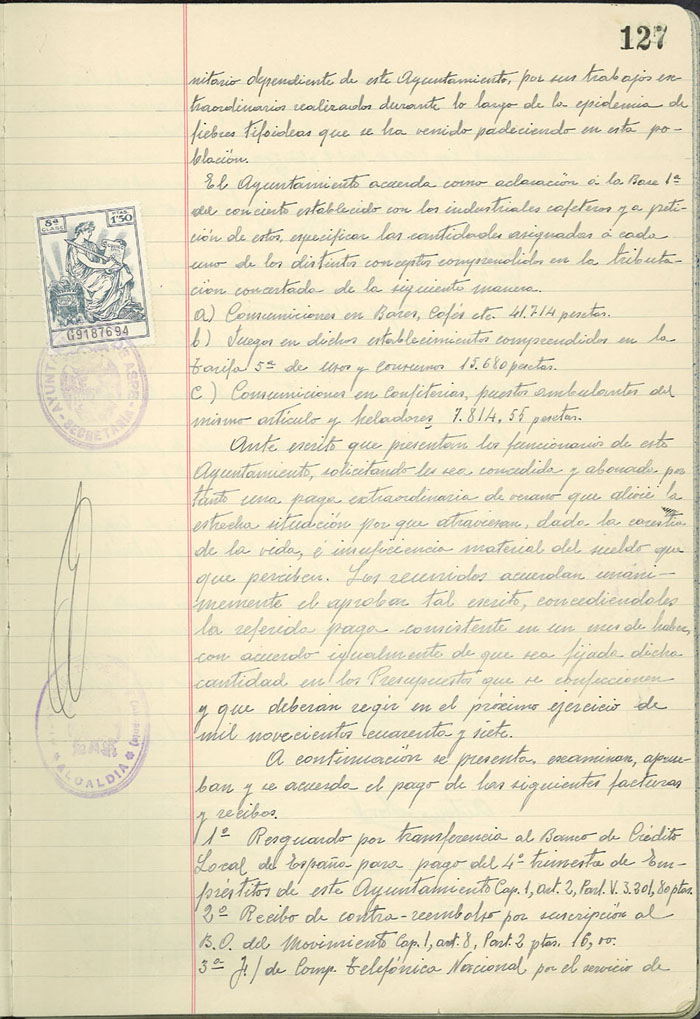 127
nitario dependiente de este Ayuntamiento, por sus trabajos ex-
traordinarios realizados durante lo largo de la epidemia de
fiebres tifoideas que se ha venido padeciendo en esta po-
blación.
El Ayuntamiento acuerda como aclaración a la Base 1ª
del concierto establecido con los industriales cafeteros y a peti-
ción de estos, especificar las cantidades asignadas a cada
uno de los distintos conceptos comprendidos en la tributa-
cion concertada de la siguiente manera.
a) Consumiciones en Bares, Cafés etc. 41.714 pesetas.
b) Juegos en dichos establecimientos comprendidos en la
Tarifa 5ª de usos y consumos 15.680 pesetas.
c) Consumiciones en confiterias, puestos ambulantes del
mismo artículo y heladores 7.814,55 pesetas.
Ante escrito que presentan los funcionarios de este
Ayuntamiento, solicitando les sea concedida y abonada por
tanto una paga extraordinaria de verano que alivie la
estrecha situación por que atraviesan, dada la carestia
de la vida, é insuficiencia material del sueldo que
que perciben. Los reunidos acuerdan unáni-
memente el aprobar tal escrito, concediendoles
la referida paga consistente en un mes de haber,
con acuerdo igualmente de que sea fijada dicha
cantidad en los Presupuestos que se confeccionen
y que deberán regir en el próximo ejercicio de
mil novecientos cuarenta y siete.
A continuación se presenta, examinan, aprue-
ban y se acuerda el pago de las siguientes facturas
y recibos.
1º Resguardo por transferencia al Banco de Crédito
Local de España para pago del 4º trimestre de Em-
préstitos de este Ayuntamiento Cap. 1, art. 2, Part. V. 3.301,80 ptas.
2º Recibo de contra-reembolso por suscripción al
B.O. del Movimiento Cap. 1, art. 8, Part. 2 ptas. 16,00.
3º Fr/ de Comp. Telefónica Nacional por el servicio de
8ª CLASE
PTAS. 1'50
G9187694
AYUNTAMIENTO DE ASPE
SECRETARIA
ALCALDIA